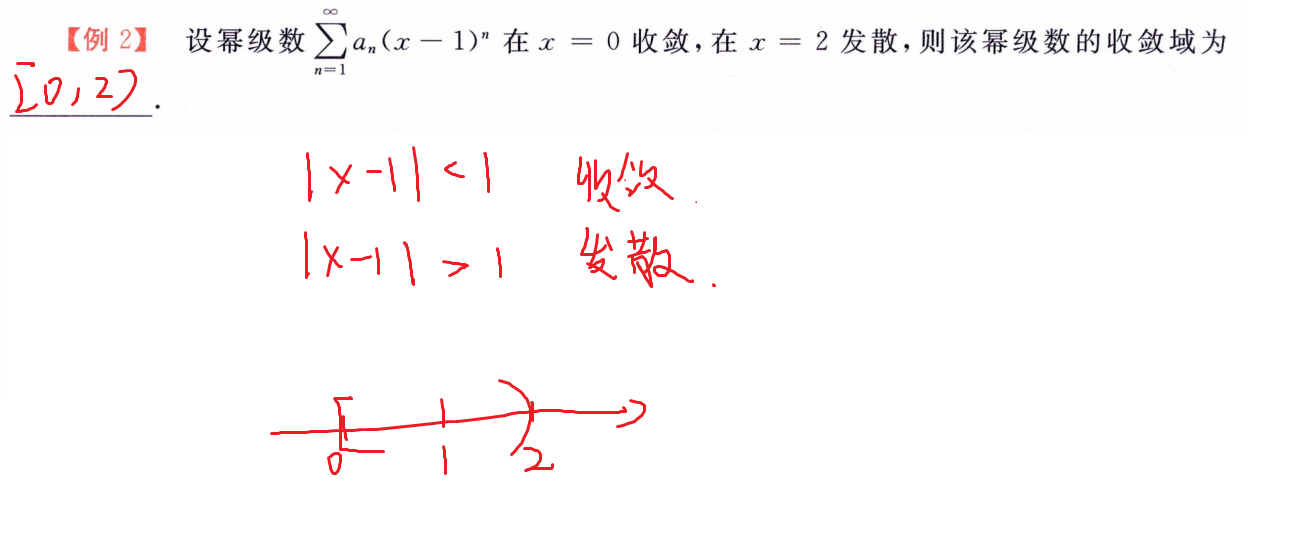 【例 2】 设幂级数 $\sum_{n=1}^{\infty} a_n(x-1)^n$ 在 x = 0 收敛,在 x = 2 发散,则该幂级数的收敛域为
[0,2).
|x-1|<1 收敛.
|x-1|>1 发散.
0 1 2